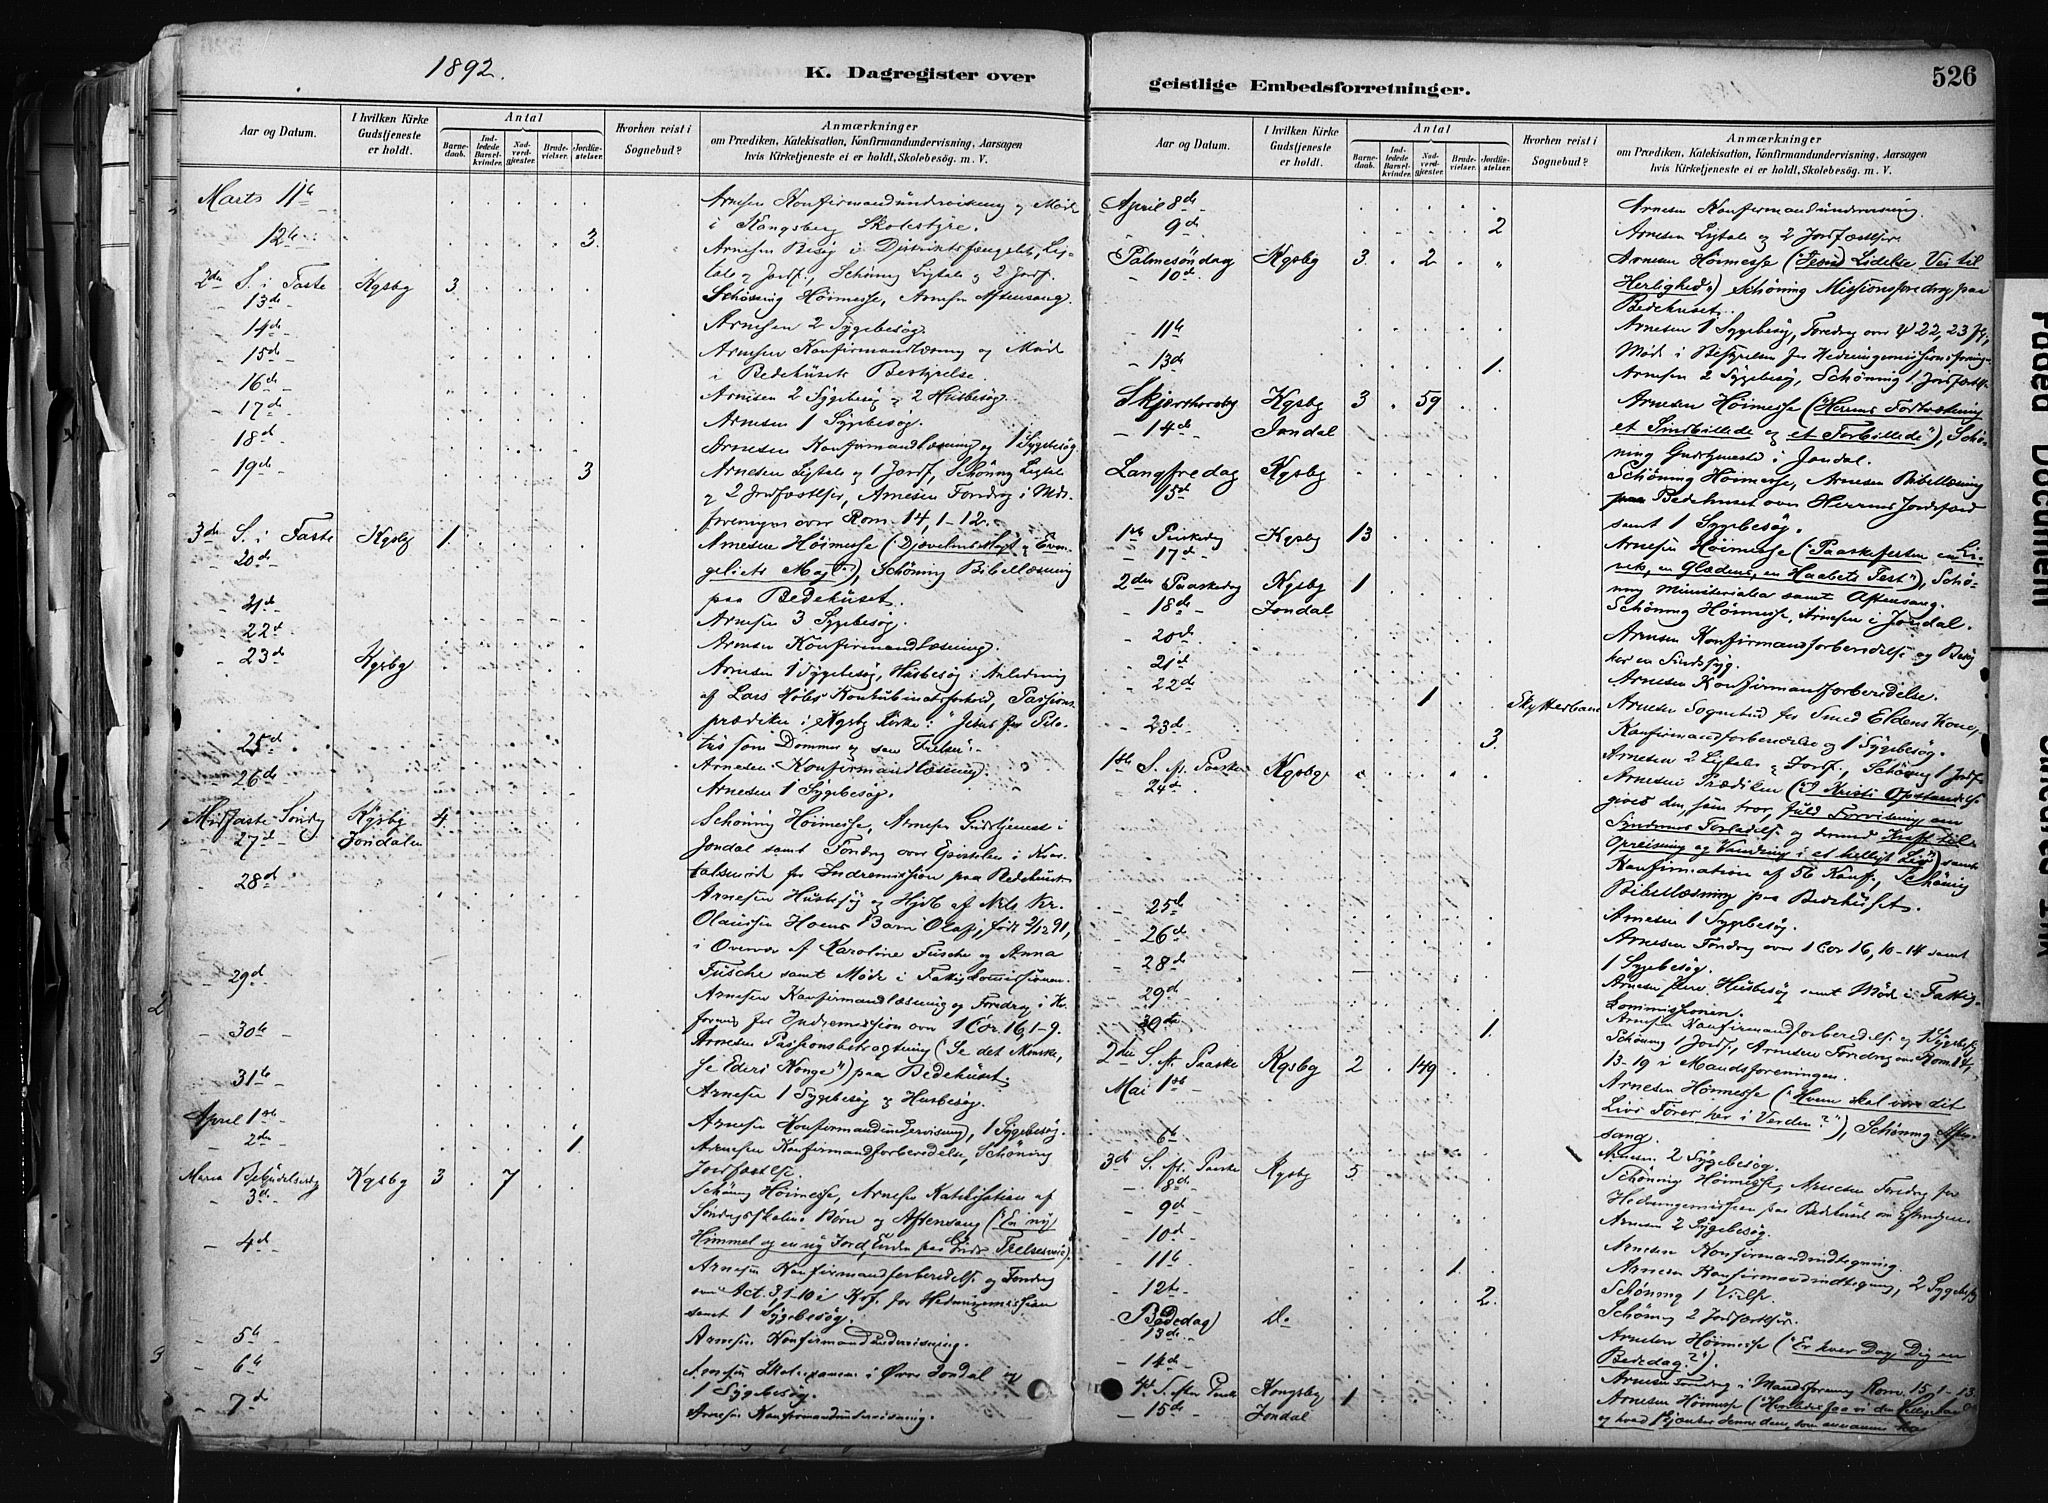 1892.
K. Dagregister over
Aar og Datum.
I hvilken Kirke Gudstjeneste er holdt.
Antal
Barnedaab.
Indledede Barselkvinder.
Nadverdgjester.
Brudevielser.
Jordfæstelser.
Hvorhen reist i Sognebud?
Anmærkninger
om Prædiken, Katekisation, Konfirmandundervisning, Aarsagen
hvis Kirketjeneste ei er holdt, Skolebesøg. m. V.
Marts 11te Arnesen Konfirmandundervisning og Møde
i Kongsberg Skolestyre.
12te 3. Arnesen Besøg i Distriktsfængslet, Lig-
tale og Jordf., Schøning Ligtale og 2 Jordf.
2den S. i Faste Kgsbg 3. Schøning Høimesse, Arnesen Aftensang.
13de
14de Arnesen 2 Sygebesøg.
15de Arnesen Konfirmandlæsning og Møde
i Bedehusets Bestyrelse.
16de Arnesen 2 Sygebesøg og 2 Husbesøg.
17de Arnesen 1 Sygebesøg.
18de Arnesen Konfirmandlæsning og 1 Sygebesøg.
19de 3 Arnesen Ligtale og 1 Jordf., Schøning Ligtale
og 2 Jordfæstelser, Arnesen Foredrag i Mds-
foreningen over Rom. 14, 1-12.
3die S. i Faste Kgsbg 1. Arnesen Høimesse (Djævelens Magt og Evan-
20de geliets Magt), Schøning Bibellæsning
paa Bedehuset.
21de Arnesen 3 Sygebesøg.
22de Arnesen Konfirmandlæsning.
23de Kgsbg Arnesen 1 Sygebesøg, Husbesøg i Anledning
af Lars Konkubinatsforhold, Passions-
prædiken i Kgsbg Kirke: "Jesus for Pila-
tus som Dommer og som Frelser".
25de Arnesen Konfirmandlæsning.
26de Arnesen 1 Sygebesøg.
Midfaste Søndag Kgsbg 4 Schøning Høimesse, Arnesen Gudstjeneste i
27de Jondalen Jondal samt Foredrag over Epistelen i Kvar-
talsmøde for Indremission paa Bedehuset.
28de Arnesen Husbesøg og Hjdb af Nils Kr.
Olaussen Hoens Barn Olaf, født 2/12 91,
i Overvær af Karoline Fusche og Anna
Fusche samt Møde i Fattigkommissionen.
29de Arnesen Konfirmandlæsning og Foredrag i
for Indremission over 1 Cor. 16, 1-9.
30te Arnesen Passionsbetragtning ("Se det Menneske,
se Eders Konge") paa Bedehuset.
31te Arnesen 1 Sygebesøg og Husbesøg.
April 1ste Arnesen Konfirmandundervisning, 1 Sygebesøg.
2den 1. Arnesen Konfirmandforberedelse, Schøning
Jordfæstelse.
Maria Bebudelsesdag Kgsbg 3 7 Schøning Høimesse, Arnesen Katekisation af
3die Søndagsskolens Børn og Aftensang ("En ny
Himmel og en ny Jord, Enden paa Guds Frelsesveie").
4de Arnesen Konfirmandforberedelse og Foredrag
over Act. 3, 1-10 i for Hedningemissionen
samt 1 Sygebesøg.
5te Arnesen Konfirmandundervisning.
6te Arnesen Skolexamen i Øvre Jondal og
1 Sygebesøg.
7de Arnesen Konfirmandundervisning.
geistlige Embedsforretninger.
526
Aar og Datum.
I hvilken Kirke Gudstjeneste er holdt.
Antal
Barnedaab.
Indledede Barselkvinder.
Nadverdgjester.
Brudevielser.
Jordfæstelser.
Hvorhen reist i Sognebud?
Anmærkninger
om Prædiken, Katekisation, Konfirmandundervisning, Aarsagen
hvis Kirketjeneste ei er holdt, Skolebesøg. m. V.
April 8de Arnesen Konfirmandundervisning.
9de 2 Arnesen Ligtale og 2 Jordfæstelser.
Palmesøndag Kgsbg 3. 2 Arnesen Høimesse ("Jesu Lidelse Vei til
10de Herlighed"), Schøning Missionsforedrag paa
Bedehuset.
11te Arnesen 1 Sygebesøg, Foredrag over ψ 22, 23 flg,
Møde i Bestyrelsen for Hedningemissionsforening.
13de 1. Arnesen 2 Sygebesøg, Schøning 1 Jordfæstelse.
Skjærthorsdag Kgsbg 3 59 Arnesen Høimesse ("Herrens Fodtvætning
14de Jondal et Sindbillede og et Forbillede"), Schø-
ning Gudstjeneste i Jondal.
Langfredag Kgsbg Schøning Høimesse, Arnesen Bibellæsning
15de paa Bedehuset over Herrens Jordefærd
samt 1 Sygebesøg.
1ste Paaskedag Kgsbg 13 Arnesen Høimesse ("Paaskefesten en Li-
17de vets, en Glædens, en Haabets Fest"), Schø-
ning Ministerialia samt Aftensang.
2den Paaskedag Kgsbg 1 Schøning Høimesse, Arnesen i Jondal.
18de Jondal
20de Arnesen Konfirmandforberedelse og Besøg
hos en Sindssyg.
21de Arnesen Konfirmandforberedelse.
22de 1 Skytterbane Arnesen Sognebud for Smed Eldens Kone,
Konfirmandforberedelse og 1 Sygebesøg.
23de 3. Arnesen 2 Ligtale og Jordf., Schøning 1 Jordf.
1ste S. ft. Paaske Kgsbg Arnesen Prædiken ("I Kristi Opstandelse
24de gives den, som tror, fuld Forvisning om
Syndernes Forladelse og dermed Kraft til
Opreisning og Vandring i et helligt Liv") samt
Konfirmation af 56 Konf., Schøning
Bibellæsning paa Bedehuset.
25de Arnesen 1 Sygebesøg.
26de Arnesen Foredrag over 1 Cor 16, 10-14 samt
1 Sygebesøg.
28de Arnesen Husbesøg samt Møde i Fattig-
kommissionen.
29de Arnesen Konfirmandforberedelse og 1 Sygebesøg
30te 1. Schøning 1 Jordf., Arnesen Foredrag over Rom. 14,
13-19 i Mandsforeningen.
2den S. ft. Paaske Kgsbg 2 149 Arnesen Høimesse ("Hvem skal være dit
Mai 1ste Livs Fører her i Verden?"), Schøning Aften-
sang.
6te Arnesen 2 Sygebesøg.
3die S. ft. Paaske Kgsbg 5 Schøning Høimesse, Arnesen Foredrag for
8de Hedningemissionen paa Bedehuset
9de Arnesen 2 Sygebesøg.
10de Arnesen Konfirmandindtegning.
11te 1. Arnesen Konfirmandindtegning, 2 Sygebesøg
Schøning 1 Vielse.
12te 2. Schøning 2 Jordfæstelser.
Bededag Do Arnesen Høimesse ("Er hver Dag Dig en
13de Bededag?").
14de Arnesen Foredrag i Mandsforening Rom. 15, 1-13.
4de S. efter Paaske Kongsbg 1 Arnesen Høimesse ("Hvorledes faa vi den Helligaand
15de Jondal og hvad